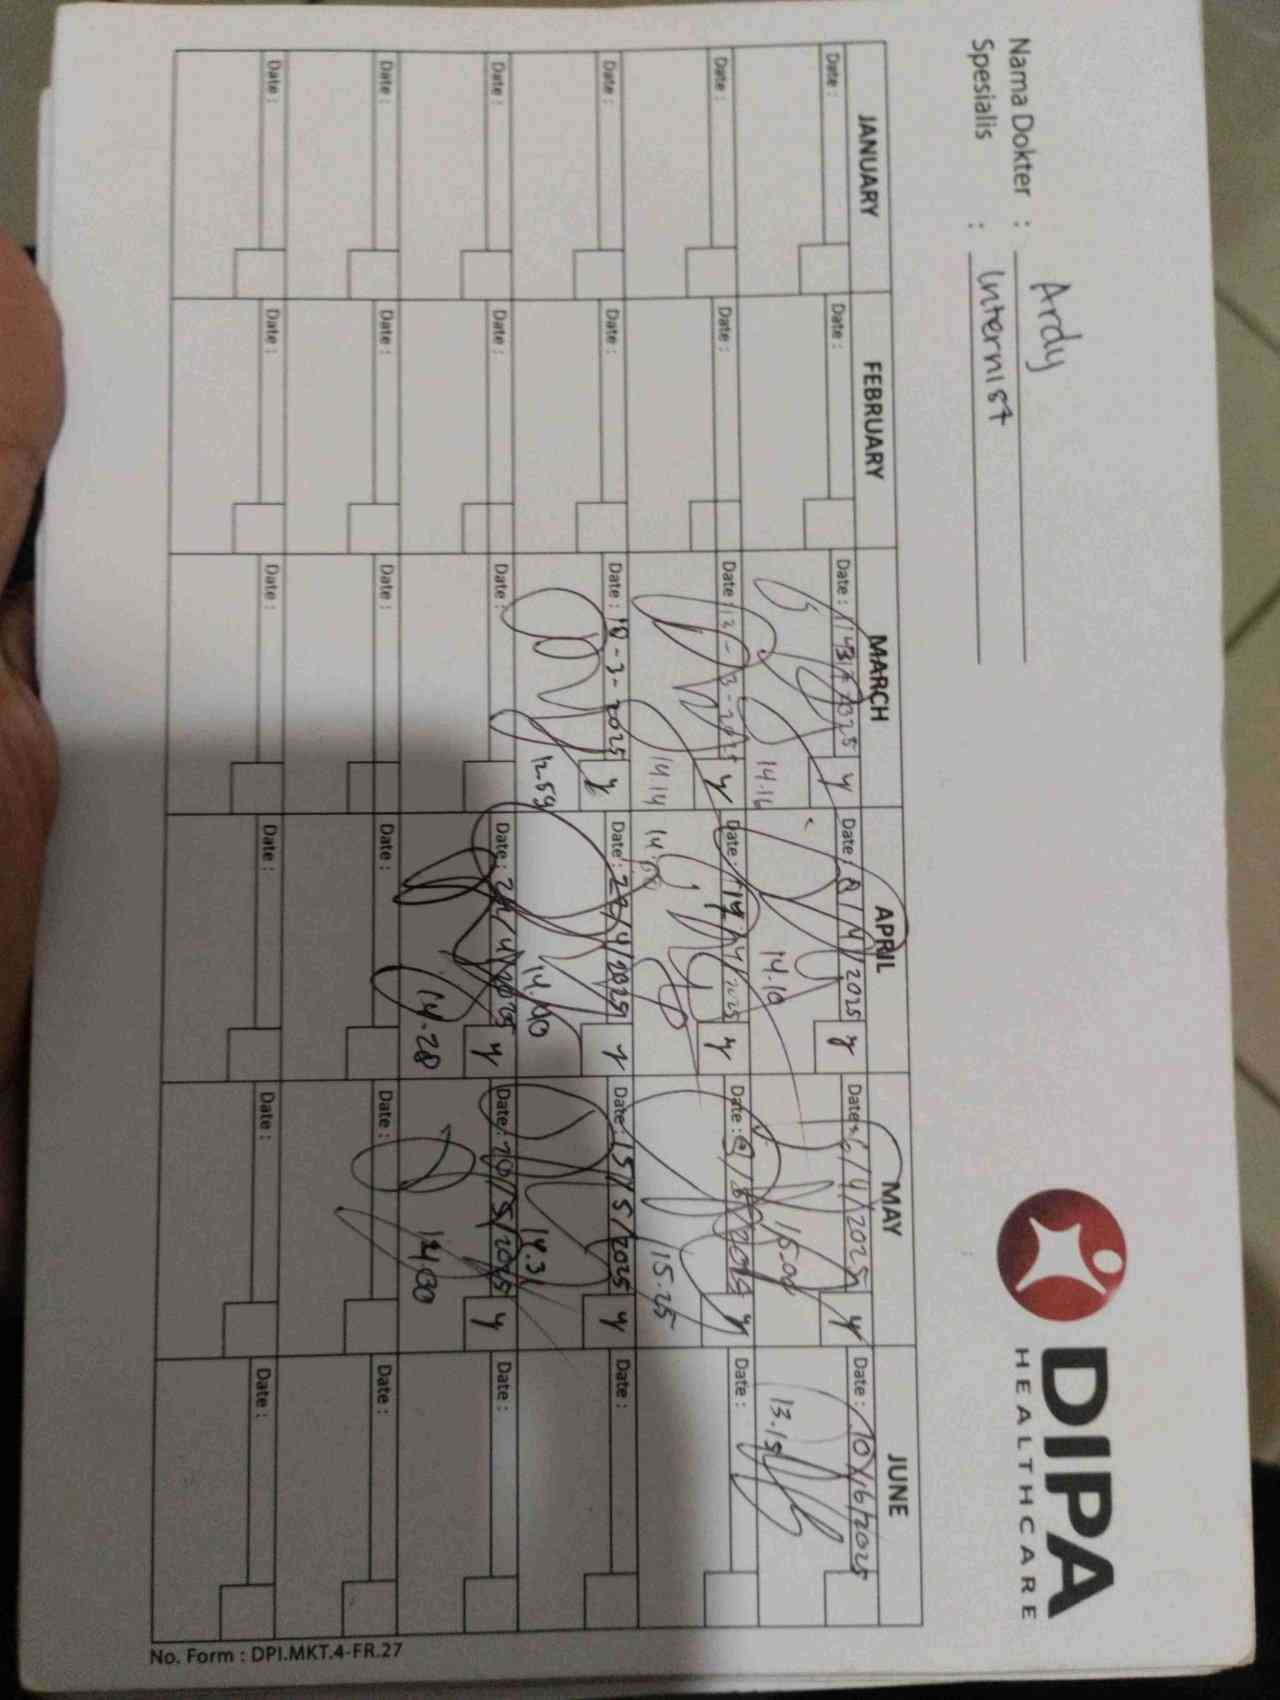 Nama Dokter : Ardy
Spesialis : Internist
DIPA
HEALTHCARE
JANUARY FEBRUARY MARCH APRIL MAY JUNE
Date : Date : Date : Date : 8/4/2025 y Date : Date : 10/6/2025
14.16 14.10 15.00 13.15
Date : Date : Date : 12-3-2025 y Date : 14/4/2025 y Date : Date :
14.14 15.25
Date : Date : Date : 18-3-2025 y Date : 22/4/2025 y Date : 15/5/2025 y Date :
12.59 14.40 14.31
Date : Date : Date : Date : 24/4/2025 y Date : 20/5/2025 y Date :
14.28 14.00
Date : Date : Date : Date : Date : Date :
Date : Date : Date : Date : Date : Date :
No. Form : DPI.MKT.4-FR.27